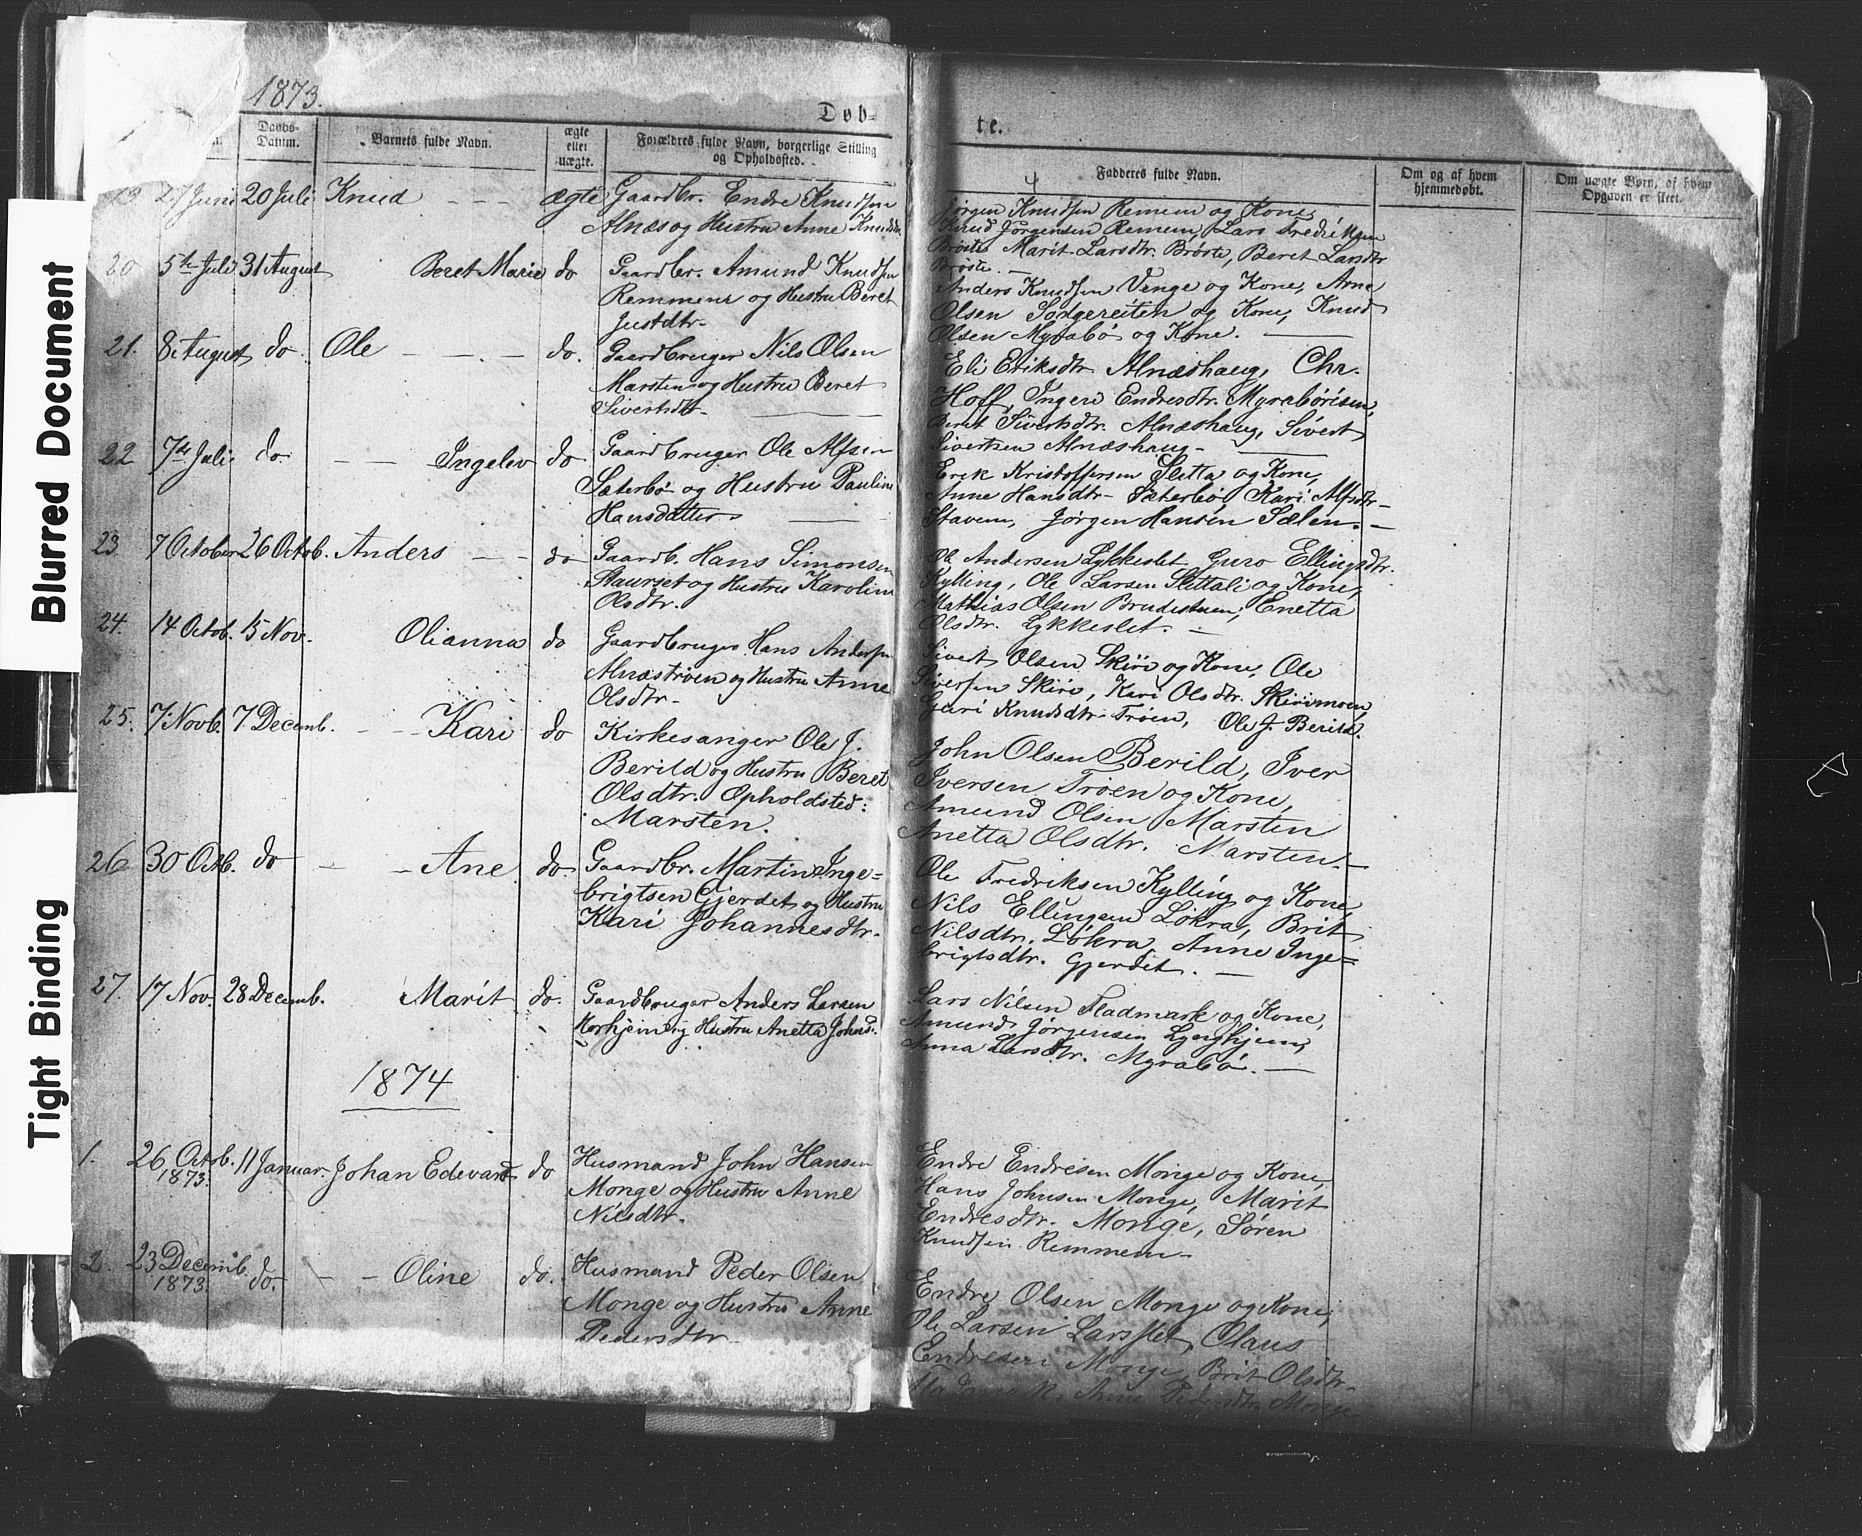 Blurred Document
Tight Binding
1873.
Døb-
te.
Daabs-
Datum.
Barnets fulde Navn.
ægte
eller
uægte.
Forældres fulde Navn, borgerlige Stilling
og Opholdssted.
Fadderes fulde Navn.
Om og af hvem
hjemmedøbt.
Om uægte Børn, af hvem
Opgaven er skeet.
19. 27 Juni 20 Juli Knud ægte Gaardbr. Endre Knudsen
Alnæs og Hustru Anne Knudsdtr.
Jørgen Knudsen Remem og Kone,
Knud Jørgensen Remem, Lars Fredriksen
Brøste Marit Larsdtr. Brøste, Beret Larsdtr
Brøste.
20 5te Juli 31 August Beret Marie do Gaardbr. Amund Knudsen
Remmem og Hustru Beret
Justdtr.
Anders Knudsen Venge og Kone, Arne
Olsen Sogereiten og Kone, Knud
Olsen Myrabø og Kone.
21. 8. August do. Ole do. Gaardbruger Nils Olsen
Marsten og Hustru Beret
Sivertsdtr.
Eli Eriksdtr Alnæshaug, Chr.
Hoff, Ingeri Endresdtr. Myrabörisen,
Beret Sivertsdtr. Alnæshaug, Sivert
Sivertsen Alnæshaug.
22 7de Juli do. Ingelev do Gaardbruger Ole Alfsen
Sæterbø og Hustru Pauline
Hansdatter
Erik Kristoffersen Sletta og Kone,
Anne Hansdtr. Sæterbø, Kari Alfsdtr.
Stavem, Jørgen Hansen Sælen.
23. 7 October 26 Octob. Anders do Gaardb. Hans Simonsen
Staurset og Hustru Karoline
Olsdtr.
Ole Andersen Lykkeslet Guro Ellingsdtr.
Kylling, Ole Larsen Slettali og Kone,
Mathias Olsen Brudestuen, Enetta
Olsdtr. Lykkeslet.
24. 14 Octob. 15 Nov. Olianna do Gaardbruger Hans Andersen
Alnæstrøen og Hustru Anne
Olsdtr.
Sivert Olsen Skiri og Kone, Ole
Siversen Skiri, Kari Olsdtr. Skirimoen,
Guri Knudsdtr. Trøen, Ole J. Berild.
25. 7. Novb. 7 Decemb. Kari do Kirkesanger Ole J.
Berild og Hustru Beret
Olsdtr. Opholdsted:
Marsten.
John Olsen Berild, Iver
Iversen Trøen og Kone,
Amund Olsen Marsten
Anetta Olsdtr. Marsten.
26 30 Octb. do Ane do Gaardbr. Martin Inge=
brigtsen Gjerdet og Hustru
Kari Johannesdtr.
Ole Fredriksen Kylling og Kone,
Nils Ellingsen Løkra, Brit
Nilsdtr. Løkra, Anne Inge=
brigtsdtr. Gjerdet.
27. 17 Nov. 28 Decemb. Marit do. Gaardbruger Anders Larsen
og Hustru Anetta Johns.
Lars Nilsen Fladmark og Kone,
Amund Jørgensen Lynghjem,
Anna Larsdtr. Myrabø.
1874
1. 26 Octob. 1873. 11 Januar Johan Edevard do Husmand John Hansen
Monge og Hustru Anne
Nilsdtr.
Endre Endresen Monge og Kone,
Hans Johnsen Monge, Marit
Endresdtr. Monge, Søren
Knudsen Remmem.
2. 23 Decemb. 1873. do. Oline do. Husmand Peder Olsen
Monge og Hustru Anne
Pedersdtr
Endre Olsen Monge og Kone,
Ole Larsen Larsslet, Olaus
Endresen Monge, Brit Olsdtr.
Anne Pedersdtr. Monge